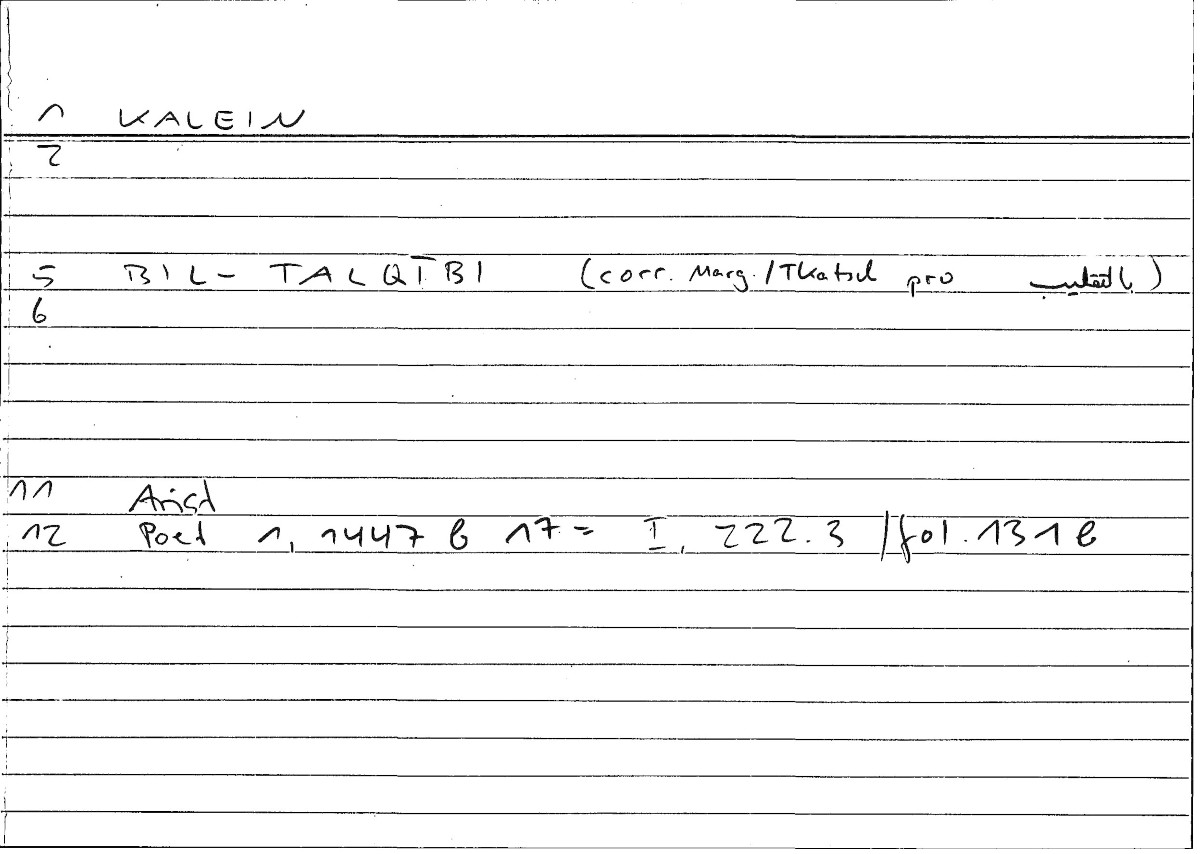 1 KALEIN
2
5 BIL- TALQĪBI (corr. Marg./Tkatsch pro بالتقليب)
6
11 Arist
12 Poet 1, 1447 b 17 = I, 222.3 / fol. 131 b